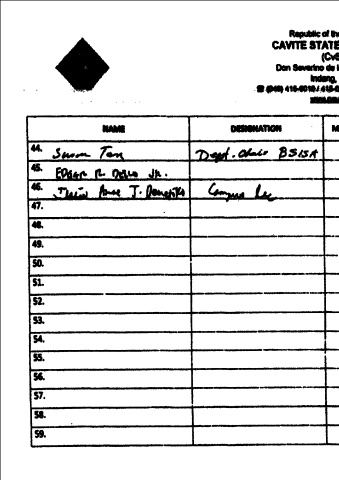 Republic of the
CAVITE STATE
(CvS
Don Severino de l
Indang,
☎ (046) 415-0010 / 415-0
www
NAME DESIGNATION M
44. Susan Tan Dept. Chair BSISA
45. EDGAR R. DELLO JR.
46. J. Campus
47.
48.
49.
50.
51.
52.
53.
54.
55.
56.
57.
58.
59.